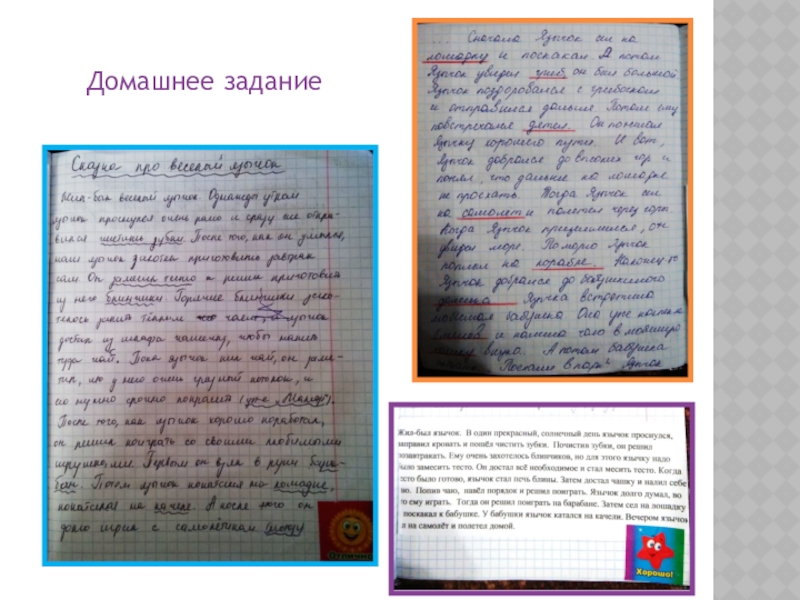 Домашнее задание
Сказка про веселый язычок
Жил-был веселый язычок Однажды утром
язычок проснулся очень рано и сразу же отпра-
вился чистить зубки. После того, как он умылся,
наш язычок захотел приготовить завтрак
сам. Он замесил тесто и решил приготовить
из него блинчики. Горячие блинчики
запить тёплым чаем, и язычок
достал из шкафа чашечку, чтобы налить
туда чай. Пока язычок пил чай, он заме-
тил, что у него очень грязный потолок, и
его нужно срочно покрасить (упр. „Маляр").
После того, как язычок хорошо поработал,
он решил поиграть со своими любимыми
игрушками. Первым он взял в руки бара-
бан. Потом язычок покатался на лошадке,
покатался на качеле. А после этого он
долго играл с самолётиком
Отлично
... Сначала Язычок сел на
лошадку и поскакал. А потом
Язычок увидел гриб, он был большой
Язычок поздоровался с грибочком
и отправился дальше. Потом ему
повстречался дятел. Он пожелал
Язычку хорошего пути. И вот,
Язычок добрался до высоких гор и
понял, что дальше на лошадке
не проехать. Тогда Язычок сел
на самолёт и полетел через горы.
Когда Язычок приземлился, он
увидел море. По морю Язычок
поплыл на корабле. Наконец-то
Язычок добрался до бабушкиного
домика. Язычка встретила
бабушка. Она уже
и налила чаю в
чашку. А потом бабушка
Язычок
Жил-был язычок. В один прекрасный, солнечный день язычок проснулся,
заправил кровать и пошёл чистить зубки. Почистив зубки, он решил
позавтракать. Ему очень захотелось блинчиков, но для этого язычку надо
было замесить тесто. Он достал всё необходимое и стал месить тесто. Когда
тесто было готово, язычок стал печь блины. Затем достал чашку и налил себе
Попив чаю, навёл порядок и решил поиграть. Язычок долго думал, во
что ему играть. Тогда он решил поиграть на барабане. Затем сел на лошадку
и поскакал к бабушке. У бабушки язычок катался на качели. Вечером язычок
сел на самолёт и полетел домой.
Хорошо!